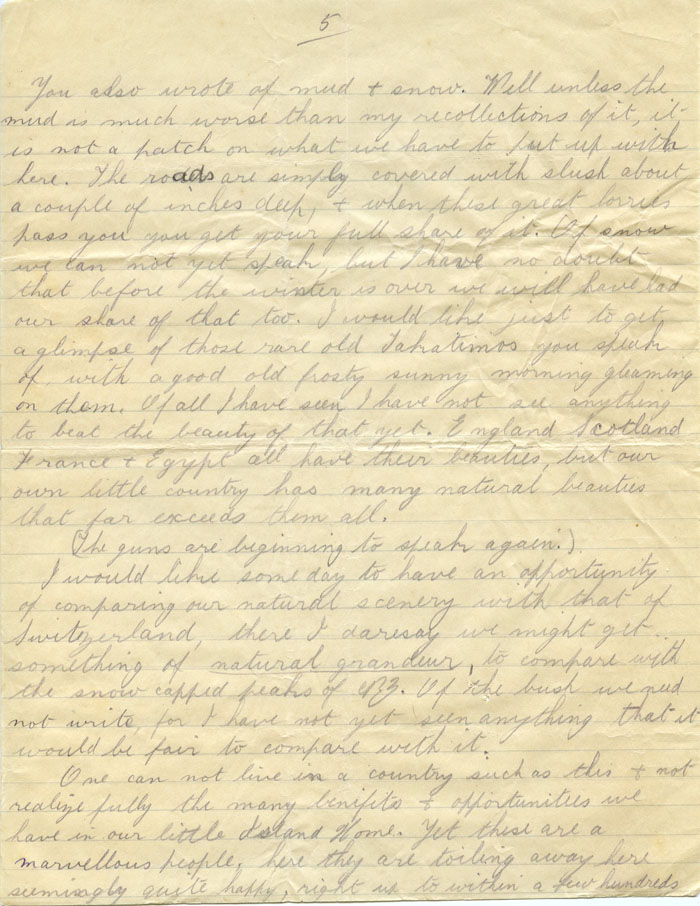 5
You also wrote of mud + snow. Well unless the
mud is much worse than my recollections of it, it
is not a patch on what we have to put up with
here. The roads are simply covered with slush about
a couple of inches deep, + when these great lorries
pass you you get your full share of it. Of snow
we can not yet speak, but I have no doubt
that before the winter is over we will have had
our share of that too. I would like just to get
a glimpse of those rare old Takatimos you speak
of, with a good old frosty sunny morning gleaming
on them. Of all I have seen I have not see anything
to beat the beauty of that yet. England Scotland
France + Egypt all have their beauties, but our
own little country has many natural beauties
that far exceeds them all.
(The guns are beginning to speak again.)
I would like some day to have an opportunity
of comparing our natural scenery with that of
Switzerland, there I daresay we might get
something of natural grandeur, to compare with
the snow capped peaks of NZ. Of the bush we need
not write, for I have not yet seen anything that it
would be fair to compare with it.
One can not live in a country such as this + not
realize fully the many benifits + opportunities we
have in our little Island Home. Yet these are a
marvellous people, here they are toiling away here
seemingly quite happy, right up to within a few hundreds